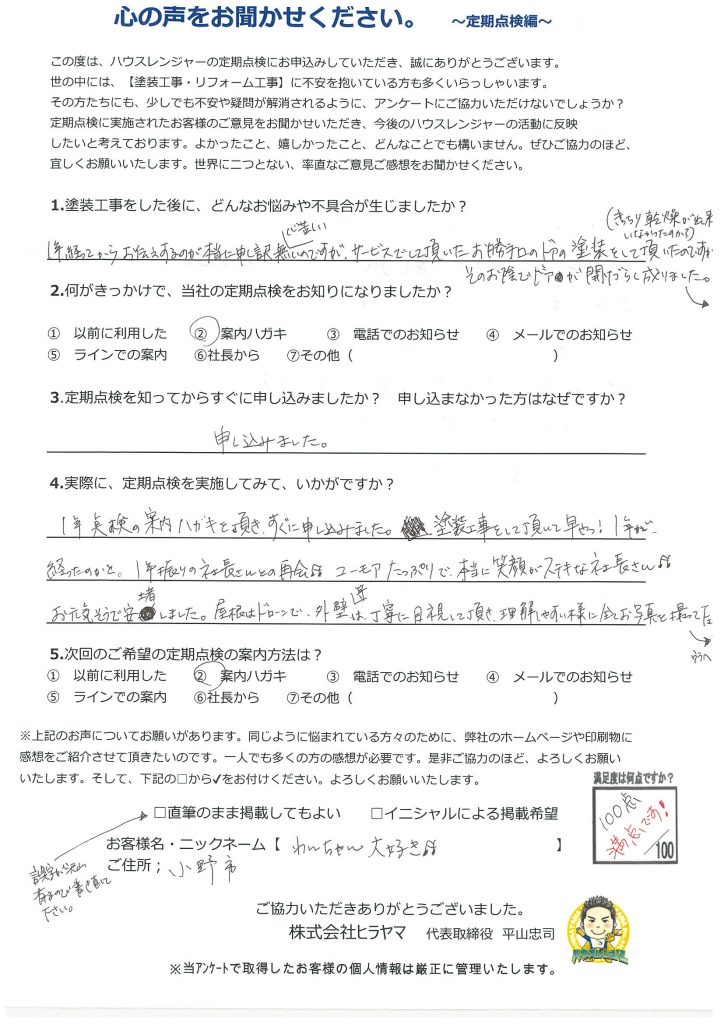 心の声をお聞かせください。 ～定期点検編～
この度は、ハウスレンジャーの定期点検にお申込みしていただき、誠にありがとうございます。
世の中には、【塗装工事・リフォーム工事】に不安を抱いている方も多くいらっしゃいます。
その方たちにも、少しでも不安や疑問が解消されるように、アンケートにご協力いただけないでしょうか？
定期点検に実施されたお客様のご意見をお聞かせいただき、今後のハウスレンジャーの活動に反映
したいと考えております。よかったこと、嬉しかったこと、どんなことでも構いません。ぜひご協力のほど、
宜しくお願いいたします。世界に二つとない、率直なご意見ご感想をお聞かせください。
1.塗装工事をした後に、どんなお悩みや不具合が生じましたか？
(きっちり乾燥が出来
いなかったのかな？)
心苦しい
1年経ってからお伝えするのが本当に申し訳無いのですが、サービスでして頂いたお勝手口のドアの塗装をして頂いたのですが
そのお陰でドアが開けづらく成りました。
2.何がきっかけで、当社の定期点検をお知りになりましたか？
① 以前に利用した ② 案内ハガキ ③ 電話でのお知らせ ④ メールでのお知らせ
⑤ ラインでの案内 ⑥社長から ⑦その他（ ）
3.定期点検を知ってからすぐに申し込みましたか？ 申し込まなかった方はなぜですか？
申し込みました。
4.実際に、定期点検を実施してみて、いかがですか？
1年点検の案内ハガキを頂き、すぐに申し込みました。塗装工事をして頂いて早やっ！1年が、
経ったのかと。1年振りの社長さんとの再会♪♪ ユーモアたっぷりで、本当に笑顔がステキな社長さん♪♪
お元気そうで安堵しました。屋根はドローンで、外壁等は、丁寧に目視して頂き、理解しやすい様に全てお写真を撮って
5.次回のご希望の定期点検の案内方法は？
① 以前に利用した ② 案内ハガキ ③ 電話でのお知らせ ④ メールでのお知らせ
⑤ ラインでの案内 ⑥社長から ⑦その他（ ）
※上記のお声についてお願いがあります。同じように悩まれている方々のために、弊社のホームページや印刷物に
感想をご紹介させて頂きたいのです。一人でも多くの方の感想が必要です。是非ご協力のほど、よろしくお願い
いたします。そして、下記の□から✓をお付けください。よろしくお願いいたします。
満足度は何点ですか？
100点
満点です！
/100
□直筆のまま掲載してもよい □イニシャルによる掲載希望
お客様名・ニックネーム【 わんちゃん大好き♪♪ 】
ご住所； 小野市
誤字が沢山
有るので書き直して
下さい。
ご協力いただきありがとうございました。
株式会社ヒラヤマ 代表取締役 平山忠司
※当アンケートで取得したお客様の個人情報は厳正に管理いたします。